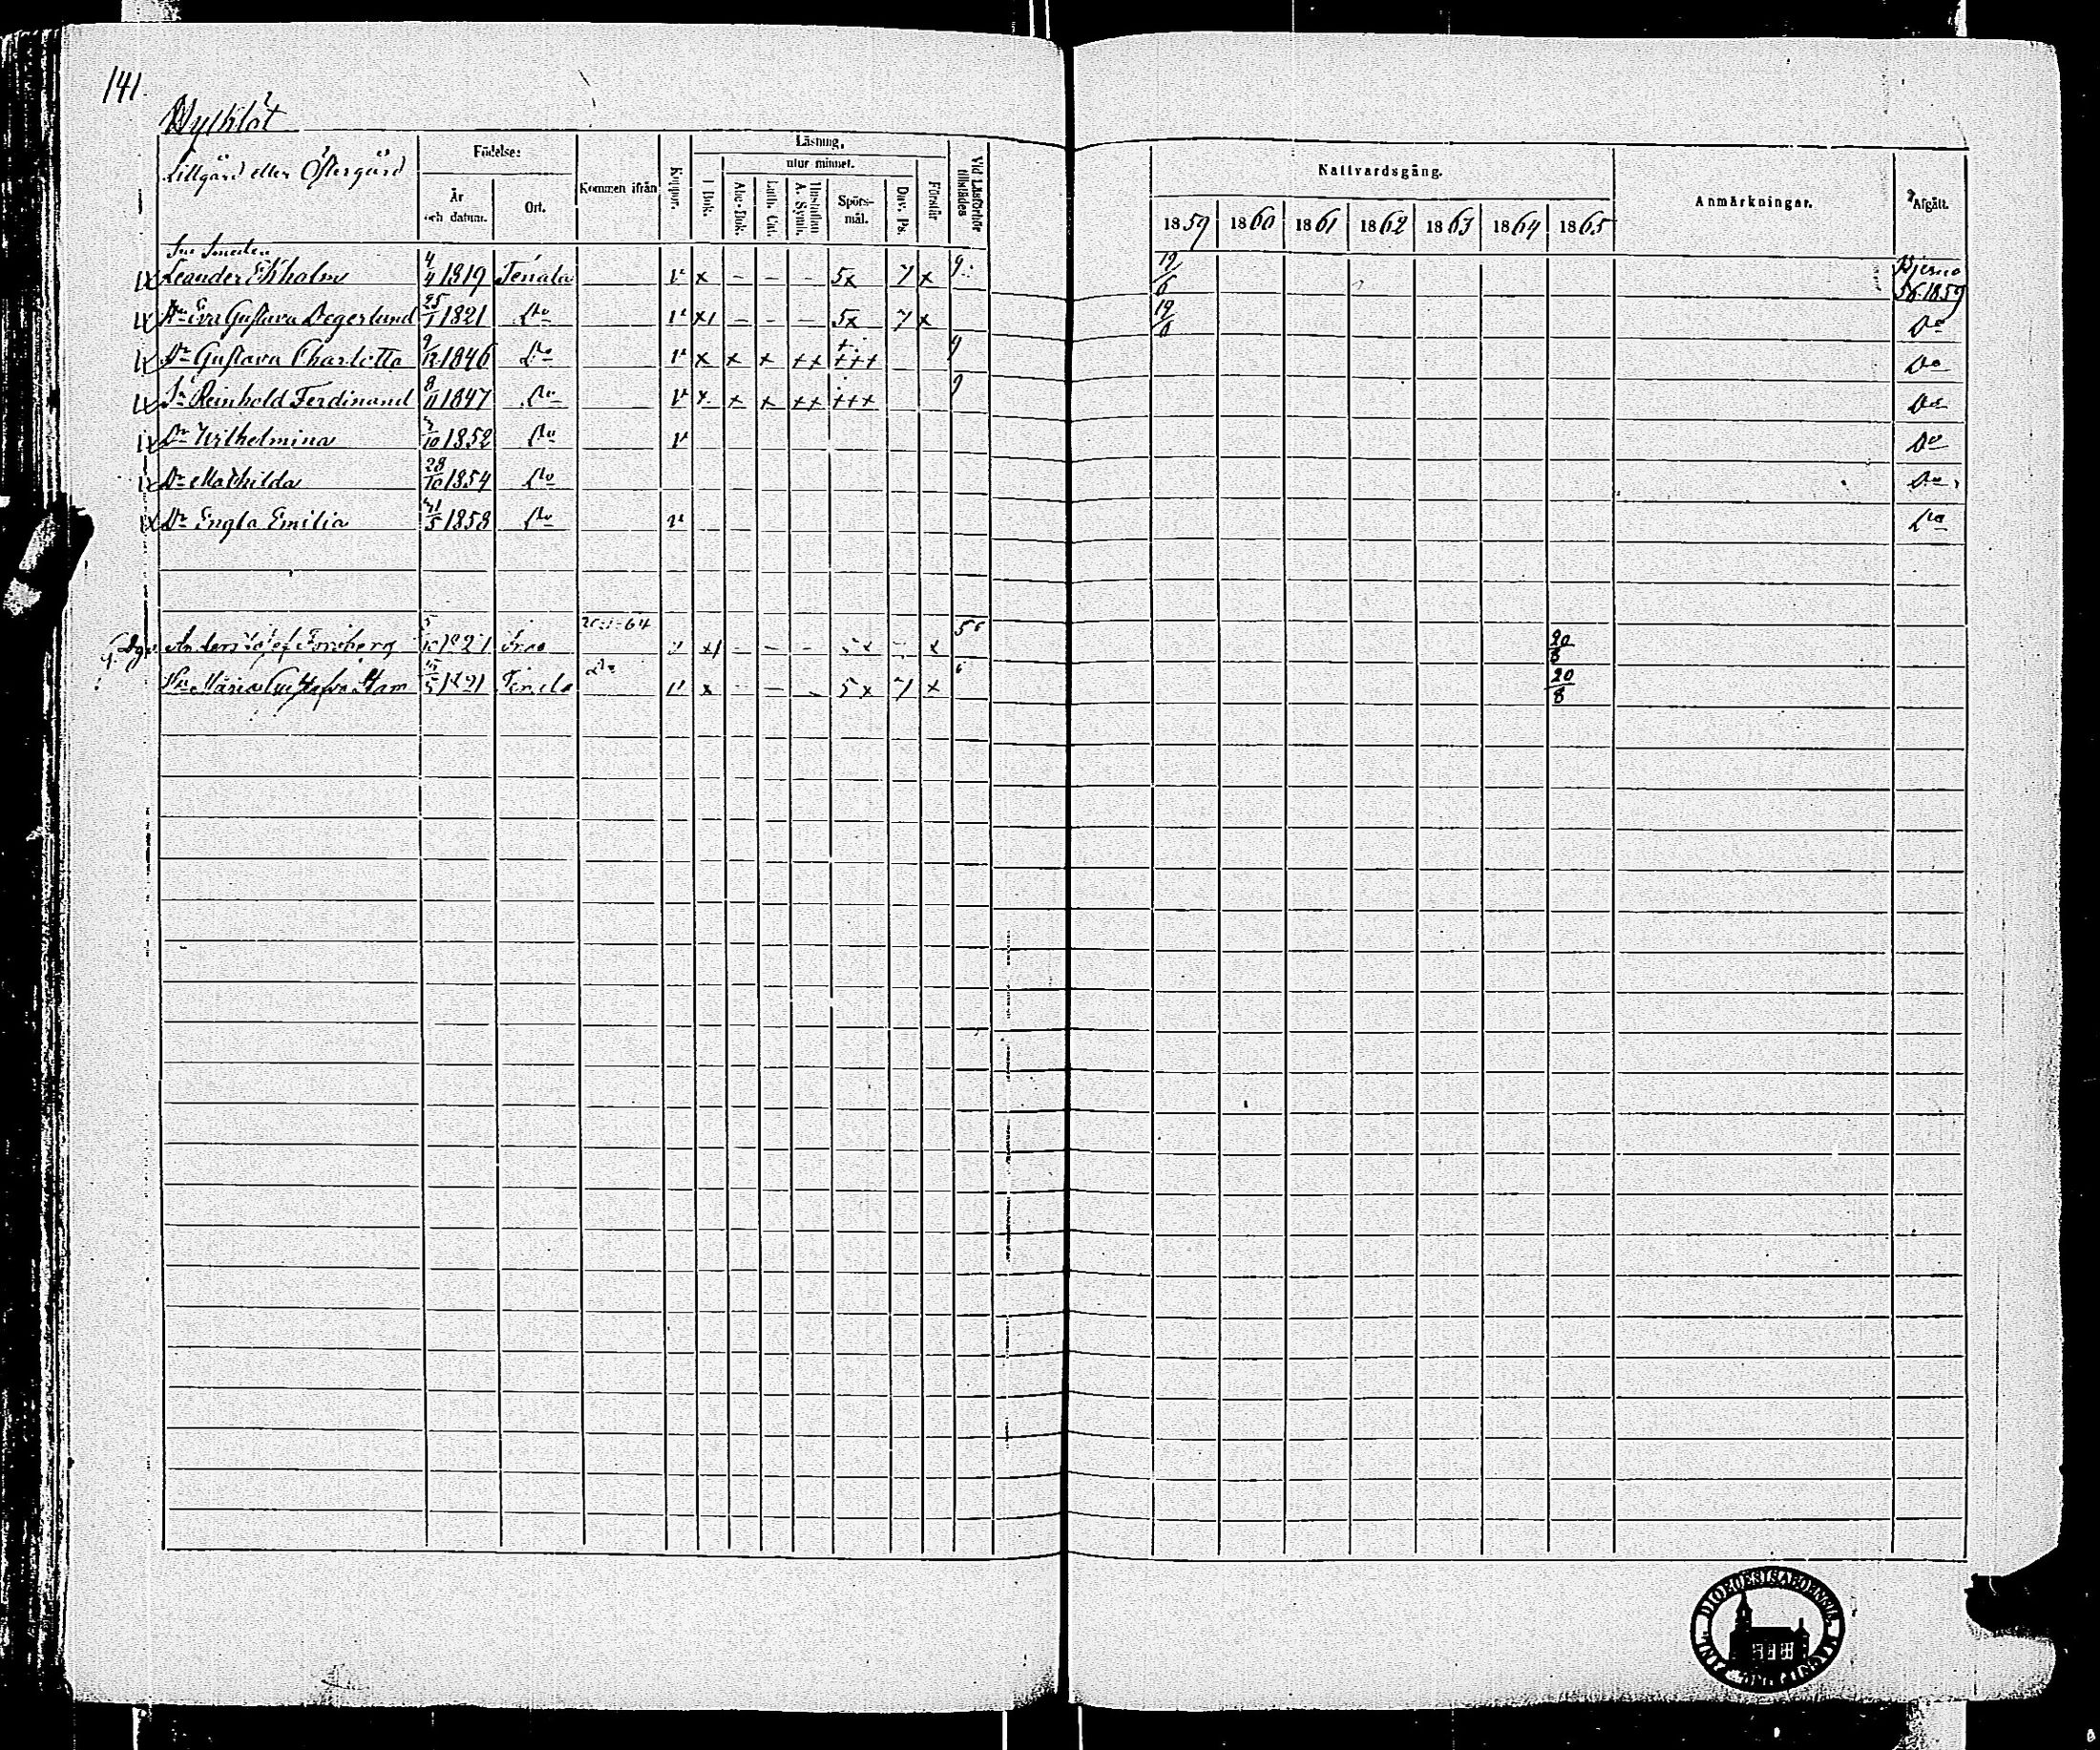 141
Lillgård eller Östergård
Födelse:
År och datum.
Ort.
Kommen ifrån
Koppor.
Läsning.
I Bok.
utur minnet.
Abc-Bok.
Luth. Cat.
Hustaflan A. Symb.
Spörs-mål.
Dav. Ps.
Förstår
Vid Läsförhör tillstädes
Nattvardsgång.
1859 1860 1861 1862 1863 1864 1865
Anmärkningar.
Afgått.
Smeden
Leander Ekholm 4/4 1819 Tenala v x – – – 5x 7 x 9 19/6 Bjerno 5/6 1859
Hu Eva Gustava Degerlund 25/1 1821 Do v x1 – – – 5x 7 x 19/6 Do
Dr Gustava Charlotta 9/12 1846 Do v x x x ++ +++ 9 Do
Sn Reinhold Ferdinand 8/11 1847 Do v x x x ++ +++ 9 Do
Dr Wilhelmina 1852 Do v Do
Dr Mathilda 28/10 1854 Do Do
Dr Engla Emilia 1858 Do v Do
Anders Josef Forsberg 1821 64 x1 – – – 5x x 20/8
Hu Maria Gustafva Stam 1821 Tenala Do v x – – – 5x 7 x 20/8